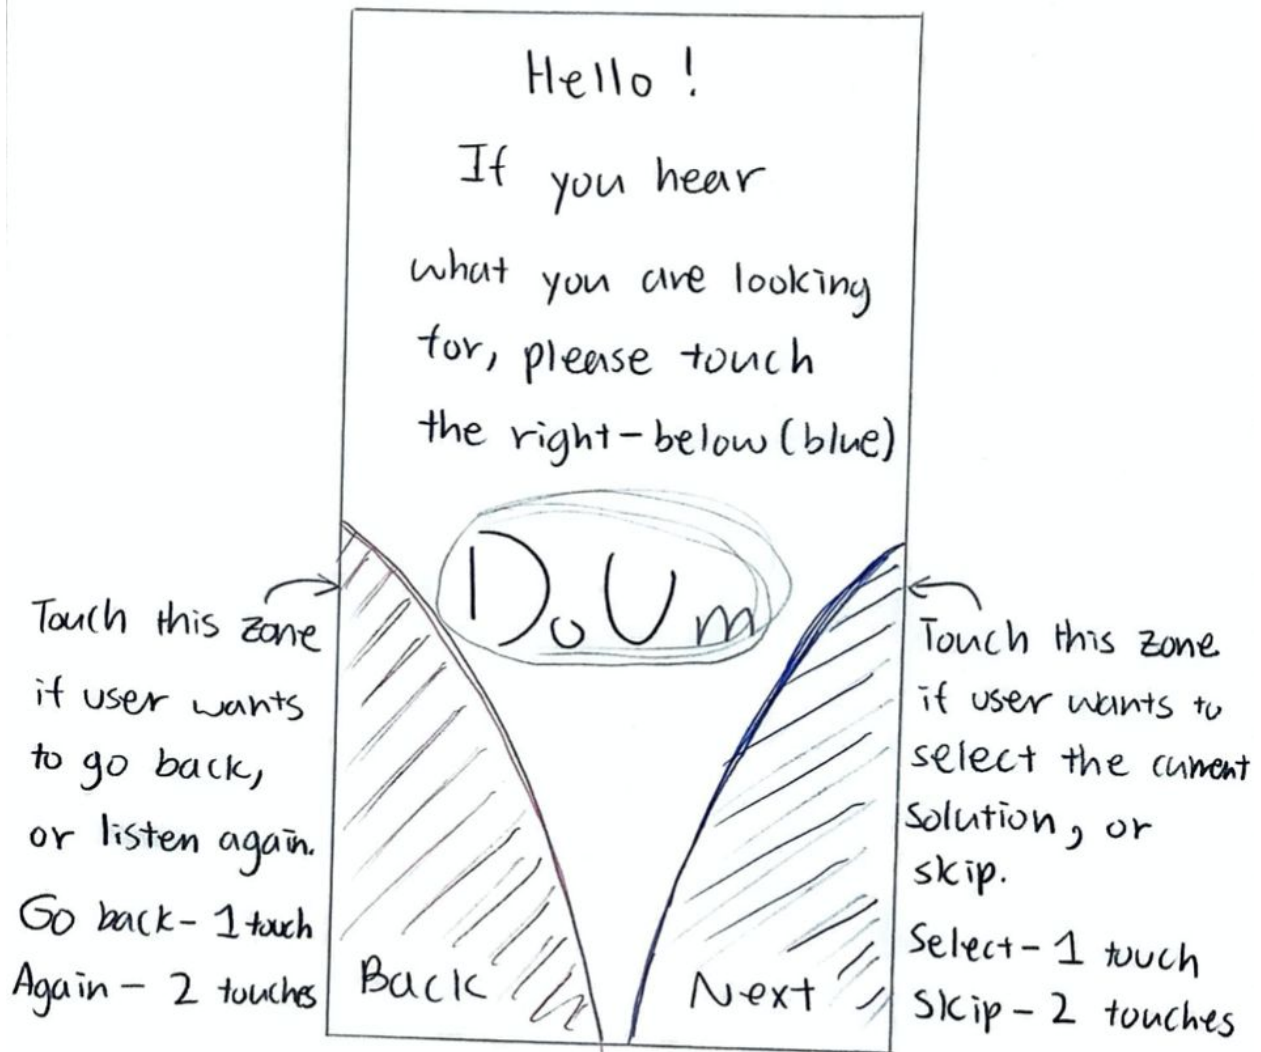 Hello !
If you hear
what you are looking
for, please touch
the right-below (blue)
DoUm
Touch this zone
if user wants
to go back,
or listen again.
Go back - 1 touch
Again - 2 touches
Back
Next
Touch this zone
if user wants to
select the current
solution, or
skip.
Select - 1 touch
Skip - 2 touches